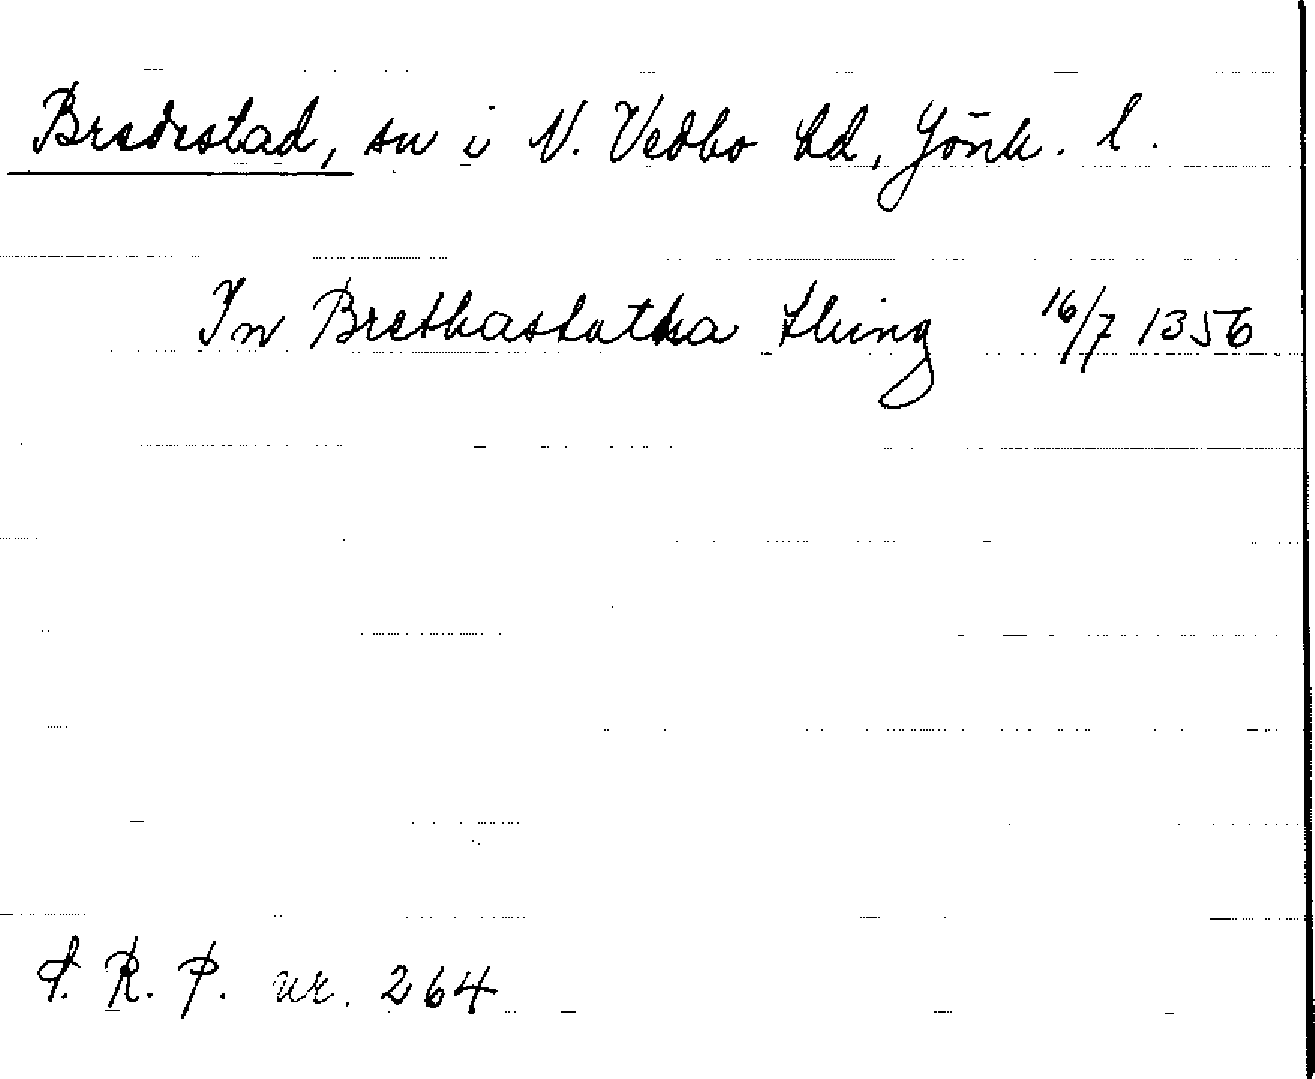 Bredestad, sn i N. Vedbo hd, Jönk. l.
In Brethastatha thing 16/7 1356
P. R. P. nr. 264